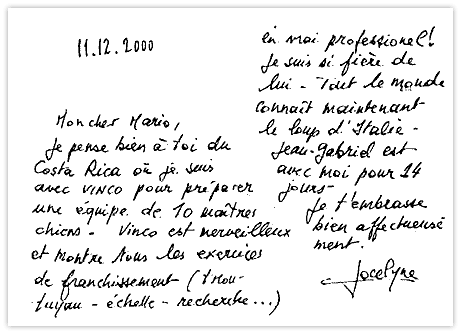 11.12.2000
Mon cher Mario,
Je pense bien à toi du
Costa Rica où je suis
avec VINCO pour préparer
une équipe de 10 maîtres
chiens - Vinco est merveilleux
et montre tous les exercices
de franchissement (tron-
tuyau - échelle - recherche...)
en vrai professionnel!
Je suis si fière de
lui - Tout le monde
connaît maintenant
le loup d'Italie -
Jean-Gabriel est
avec moi pour 14
jours -
Je t'embrasse
bien affectueuse
ment.
Jocelyne